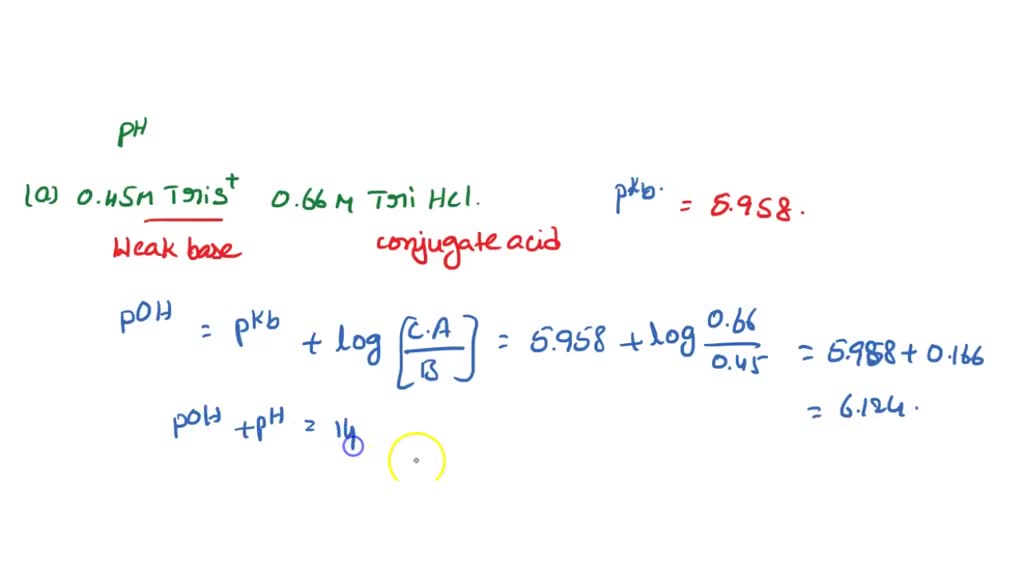 pH
(a) 0.45M Tris⁺ 0.66 M Tri Hcl. pKb. = 5.958.
Weak base conjugate acid
pOH = pKb + log [C.A/B] = 5.958 + log 0.66/0.45 = 5.958 + 0.166
= 6.124.
pOH + pH = 14